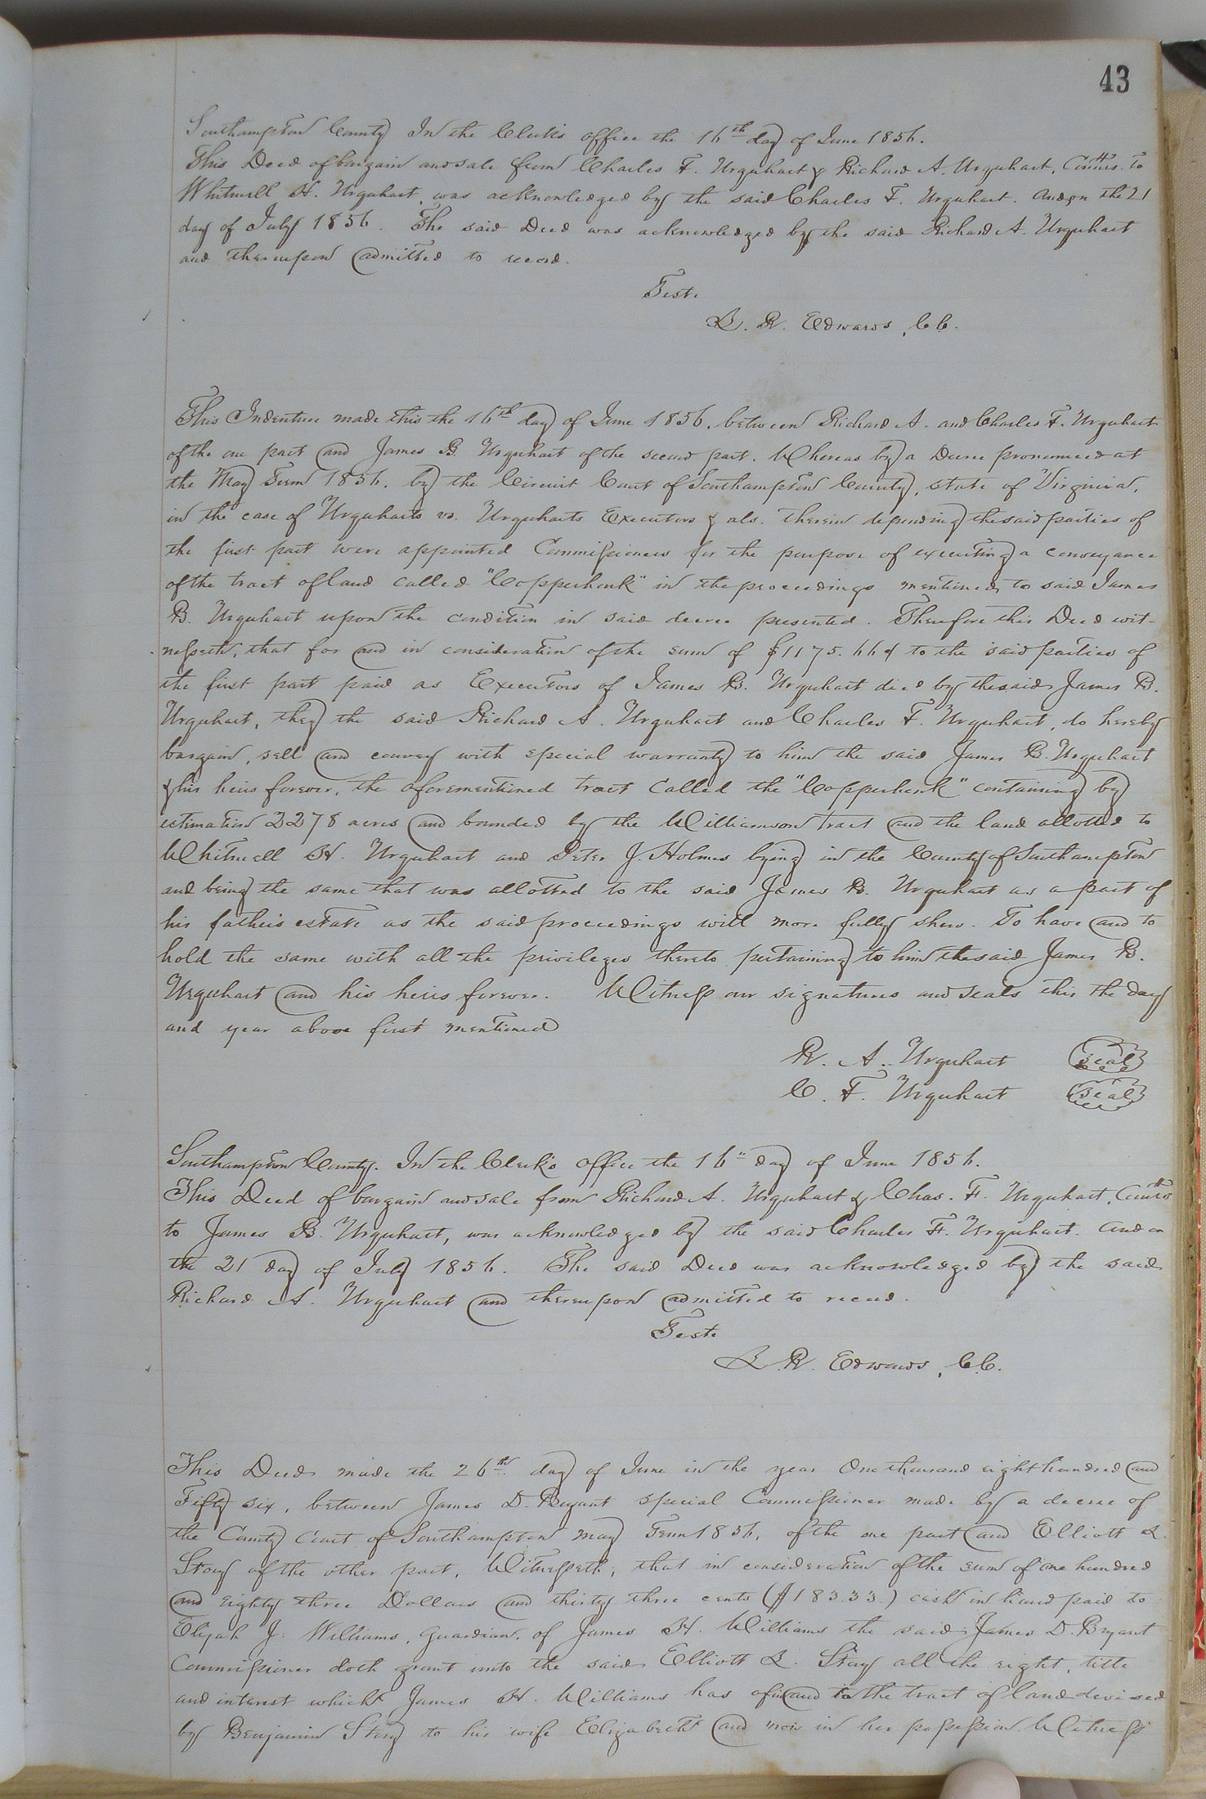 43
Southampton County In the Clerk's office the 16th day of June 1856.
This Deed of bargain and sale from Charles F. Urquhart & Richard A. Urquhart, Comrs. to
Whitmell H. Urquhart, was acknowledged by the said Charles F. Urquhart. And on the 21
day of July 1856. The said Deed was acknowledged by the said Richard A. Urquhart
and thereupon admitted to record.
Teste
L. R. Edwards, C.C.
This Indenture made this the 16th day of June 1856, between Richard A. and Charles F. Urquhart
of the one part and James B. Urquhart of the second part. Whereas by a Decree pronounced at
the May Term 1856, by the Circuit Court of Southampton County, state of Virginia,
in the case of Urquharts vs. Urquharts Executors & als. therein depending the said parties of
the first part were appointed Commissioners for the purpose of executing a conveyance
of the tract of land called "Copperhonk" in the proceedings mentioned, to said James
B. Urquhart upon the condition in said decree presented. Therefore this Deed wit-
nesseth, that for and in consideration of the sum of $1175.66¢ to the said parties of
the first part paid as Executors of James B. Urquhart decd by the said James B.
Urquhart, they the said Richard A. Urquhart and Charles F. Urquhart, do hereby
bargain, sell and convey with special warranty to him the said James B. Urquhart
& his heirs forever, the aforementioned tract called the "Copperhonk" containing by
estimation 2278 acres and bounded by the Williamson tract and the land allotted to
Whitmell H. Urquhart and Peter J. Holmes lying in the County of Southampton
and being the same that was allotted to the said James B. Urquhart as a part of
his father's estate as the said proceedings will more fully shew. To have and to
hold the same with all the privileges thereto pertaining to him the said James B.
Urquhart and his heirs forever. Witness our signatures and seals this the day
and year above first mentioned
R. A. Urquhart seal
C. F. Urquhart seal
Southampton County. In the Clerk's office the 16" day of June 1856.
This Deed of bargain and sale from Richard A. Urquhart & Chas. F. Urquhart, Comrs
to James B. Urquhart, was acknowledged by the said Charles F. Urquhart. And on
the 21 day of July 1856. The said Deed was acknowledged by the said
Richard A. Urquhart and thereupon admitted to record.
Teste
L. R. Edwards, C.C.
This Deed made the 26th day of June in the year One thousand eight hundred and
Fifty six, between James D. Bryant special Commissioner made by a decree of
the County Court of Southampton May Term 1856, of the one part and Elliott L.
Story of the other part, Witnesseth, that in consideration of the sum of one hundred
and eighty three Dollars and thirty three cents ($183.33) cash in hand paid to
Elijah J. Williams, guardian, of James H. Williams the said James D. Bryant
Commissioner doth grant unto the said Elliott L. Story all the right, title
and interest which James H. Williams has of in and to the tract of land devised
by Benjamin Story to his wife Elizabeth and now in her possession Witness